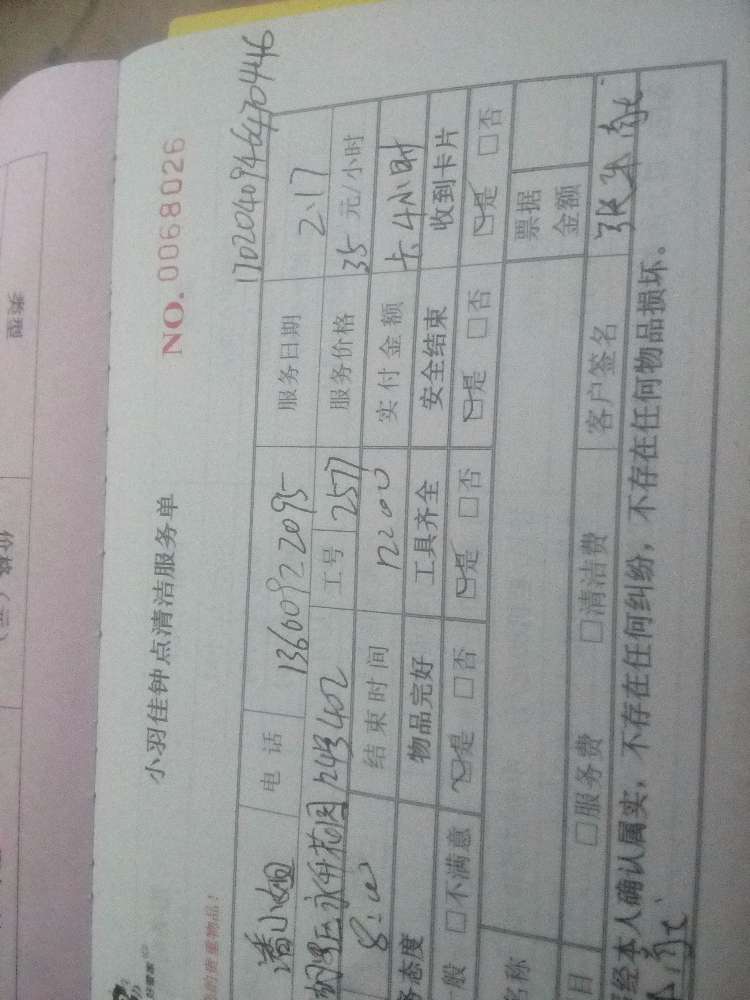 小羽佳钟点清洁服务单
NO. 0068026
好管家
的贵重物品！
潘小姐 电话 13660922095 服务日期 2.17
永升花园 工号 2577 服务价格 35 元/小时
8:00 结束时间 12:00 实付金额 卡4小时
务态度 物品完好 工具齐全 安全结束 收到卡片
般 □不满意 ☑是 □否 ☑是 □否 ☑是 □否 ☑是 □否
名称 票据金额
目 □服务费 □清洁费 客户签名
经本人确认属实，不存在任何纠纷，不存在任何物品损坏。
类型